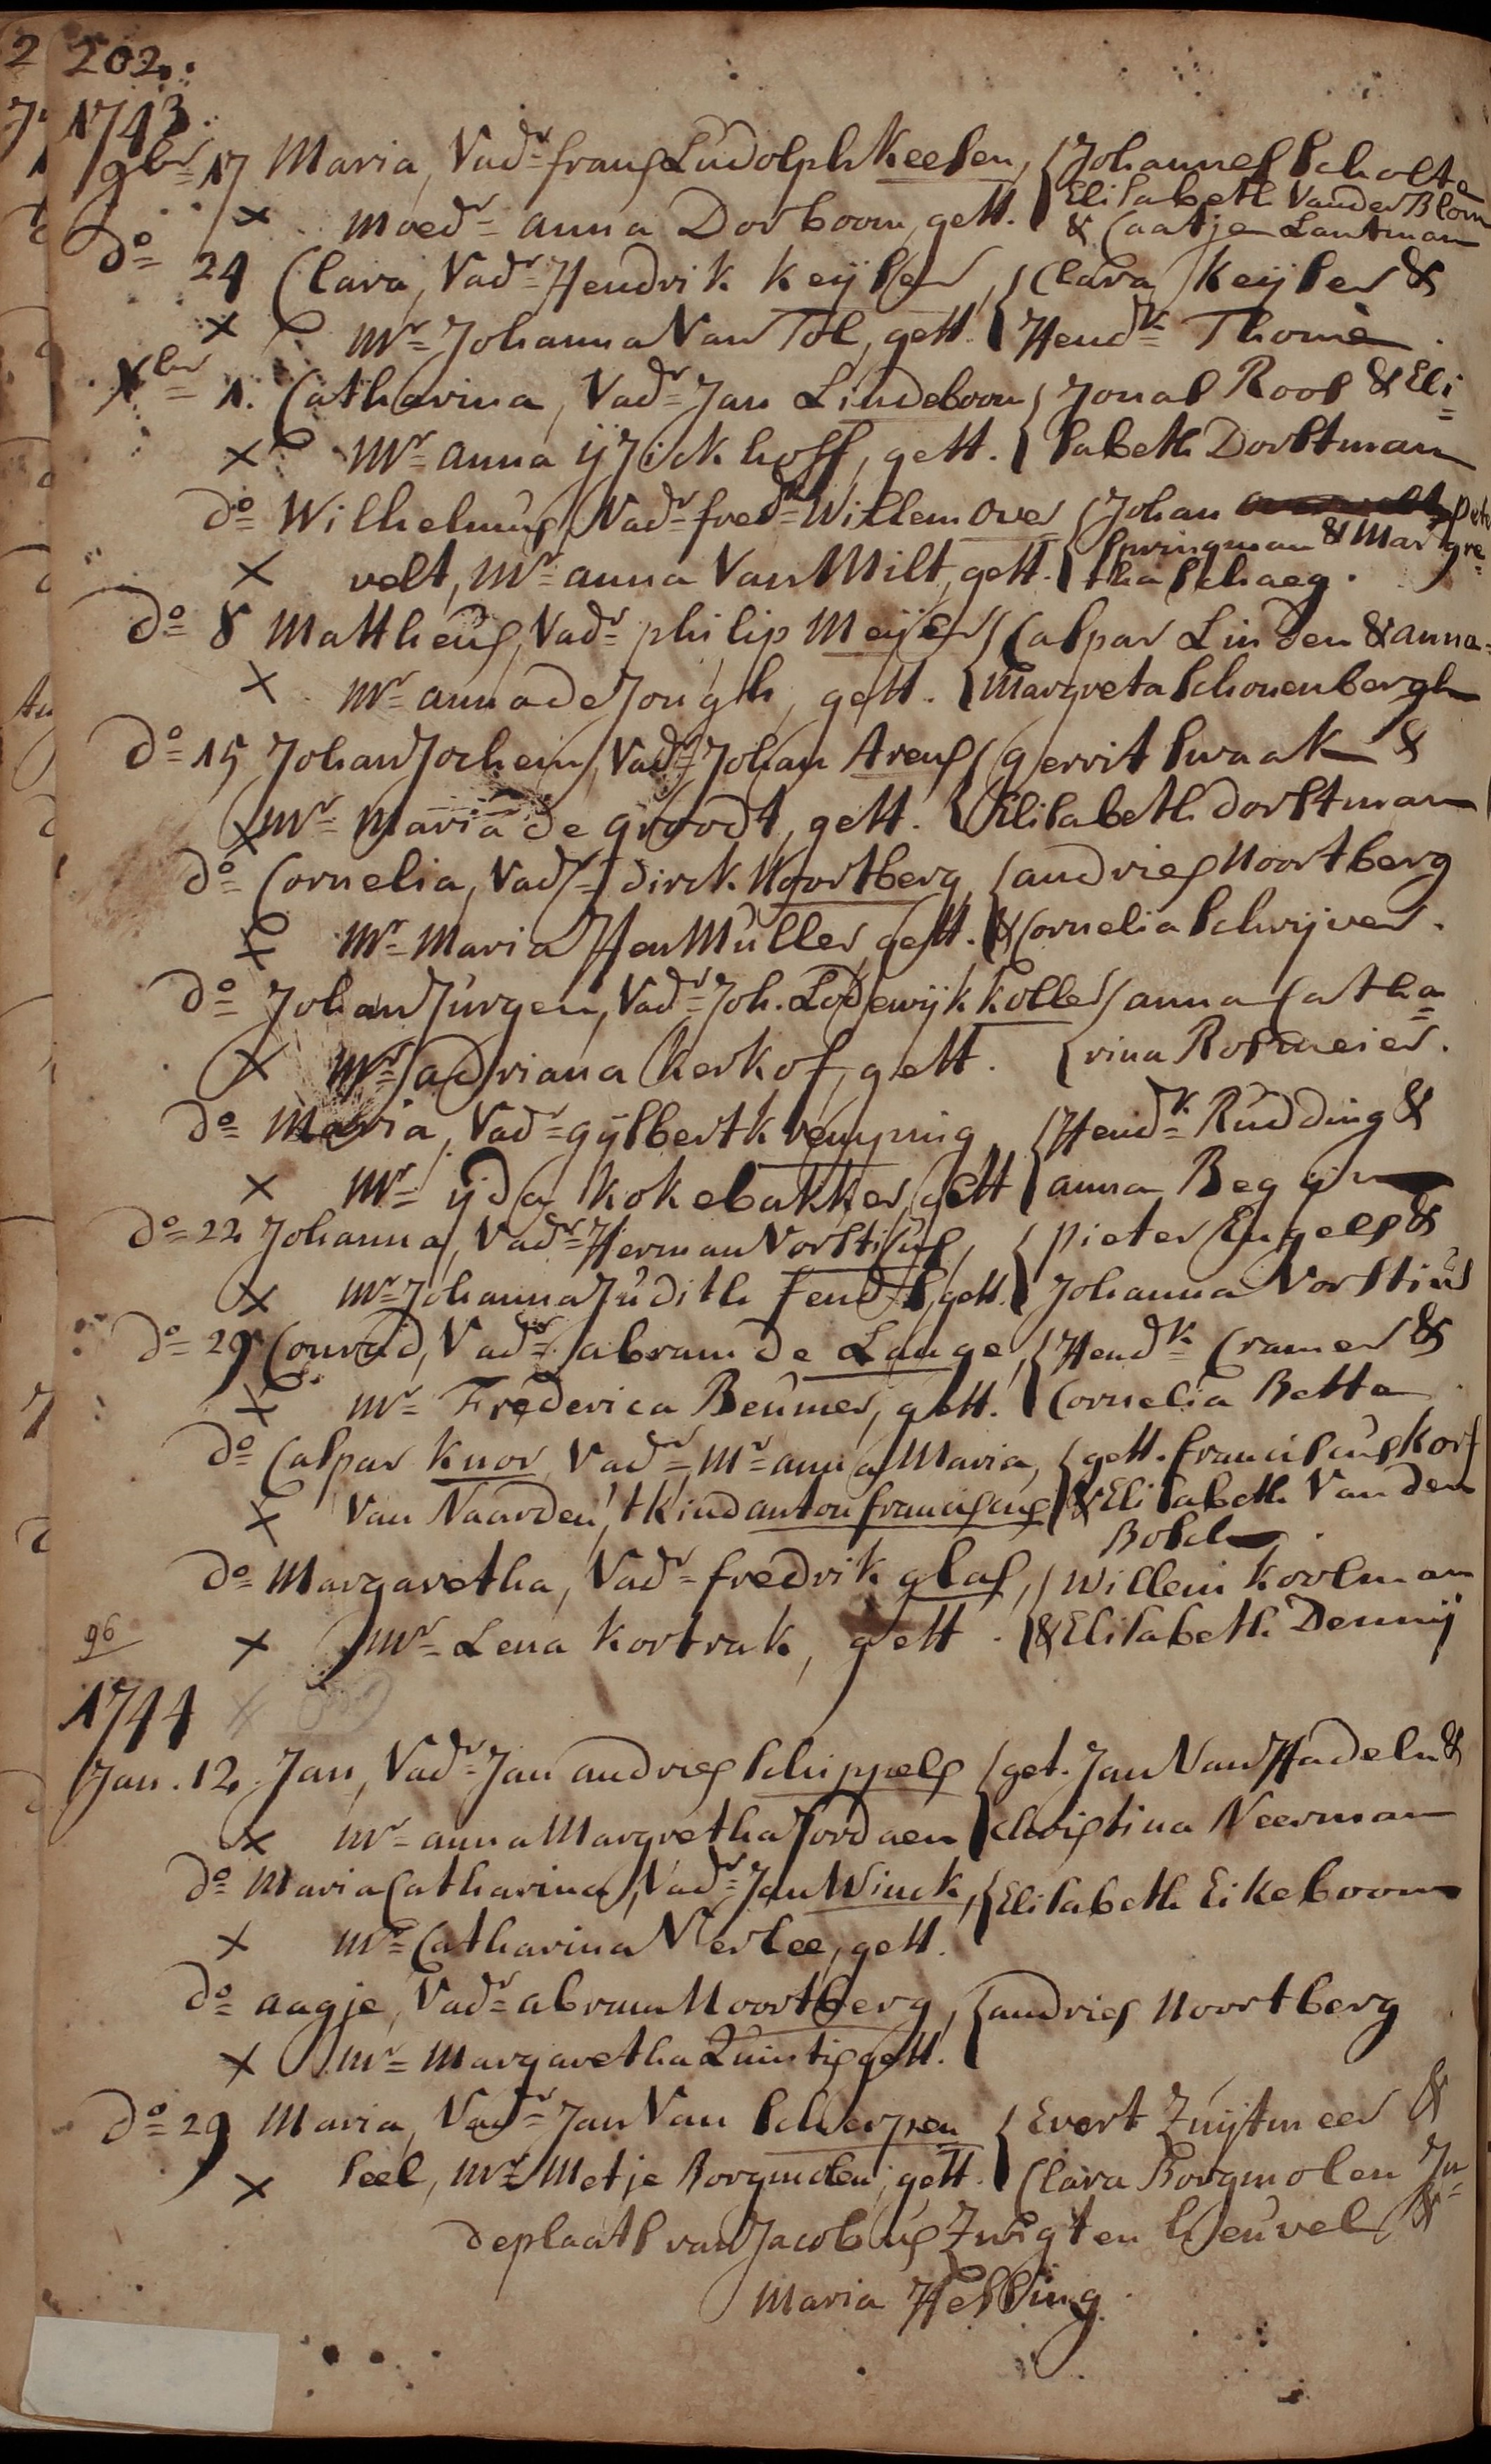 202.
1743.
9br 17 Maria, Vadr frans Ludolph Keesen, Johannes Scholte
x moedr anna Dorboom, gett. Elisabeth Vander Blom & Caatje Lantman
do 24 Clara, Vadr Hendrik Keijser, Clara Keijser &
x Mr Johanna Van Tol, gett. Hendk Thomè
Xbr 1. Catharina, Vadr Jan Lindeboom Jonas Roos & Eli=
x Mr anna ijzickhoff, gett. sabeth Dorstman
do Wilhelmus, Vadr fredk Willem Over Johan
x velt, Mr anna Van Milt, gett. Springman & Margre=tha Schaeg.
do 8 Mattheus, Vadr philip Meijer Caspar Linden & anna=
x Mr anna de Jongh, gett. Margreta Schonenbergh
do 15 Johan Jochem, Vadr Johan Arens gerrit Swaak &
x Mr Maria de groodt, gett. Elisabeth dorstman
do Cornelia, Vadr dirck Noortberg, andries Noortberg
x Mr Maria Hen Muller, gett. & Cornelia Schrijver.
do Johan Jurgen, Vadr Joh. Lodewijk Koller anna Catha=
x Mr adriana Kerkof, gett. rina Rosmeier.
do Maria, Vadr gijsbert Kremping Hendk Rudding &
x Mr ijda Kokebakker, gett anna Beggin
do 22 Johanna, Vadr Herman Vorstius, pieter Engels &
x Mr Johanna Judith Fends, gett. Johanna Vorstius
do 29 Conrad, Vadr abram de Lange, Hendk Cramer &
x Mr Frederica Beumer, gett. Cornelia Betta
do Caspar Knor, Vadr Mr anna Maria, gett. franciscus Korf
x Van Naarden, 't Kind anton franciscus & Elisabeth Van den
Bosch.
do Margaretha, Vadr fredrik glas, Willem Koolman
96 x Mr Lena Kortrak, gett. & Elisabeth Dennij
1744
Jan. 12. Jan, Vadr Jan andries Schippels get. Jan Van Hadeln &
x Mr anna Margretha Jordaen Christina Neerman
do Maria Catharina, Vadr Jan Winck, Elisabeth Eikeboom
x Mr Catharina Verlee, gett.
do aagje, Vadr abram Noortberg, andries Noortberg
x Mr Margaretha Quintis gett.
do 29 Maria, Vadr Jan Van Scherpen Evert Zuijtmeer &
x seel, Mr Metje Borgmolen, gett. Clara Borgmolen In
de plaats van Jacobus Zwigten heuvel &
Maria Helsing.